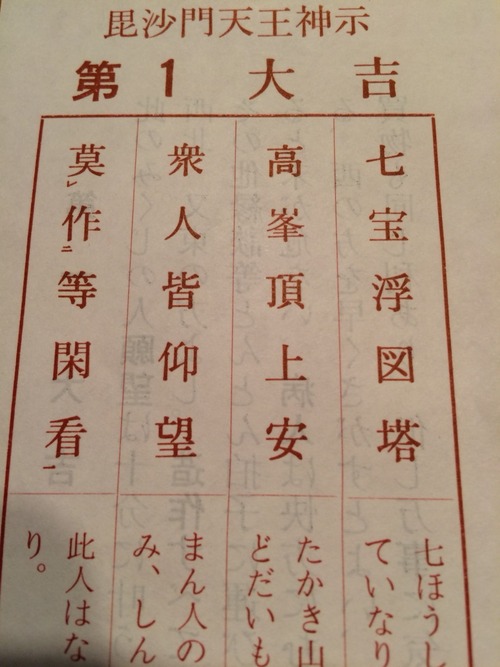 毘沙門天王神示
第1大吉
七宝浮図塔
高峯頂上安
衆人皆仰望
莫レ作二等閑看一
七ほうし
ていなり
たかき山
どだいも
まん人の
み、しん
此人はな
り。